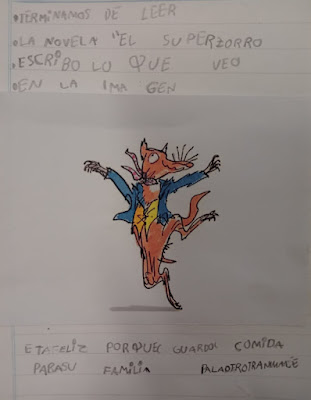 •TERMINAMOS DE LEER
•LA NOVELA "EL SUPERZORRO
•ESCRIBO LO QUE VEO
•EN LA IMA GEN
ETAFELIZ PORQUE GUARDOL COMIDA
PARASU FAMILIA